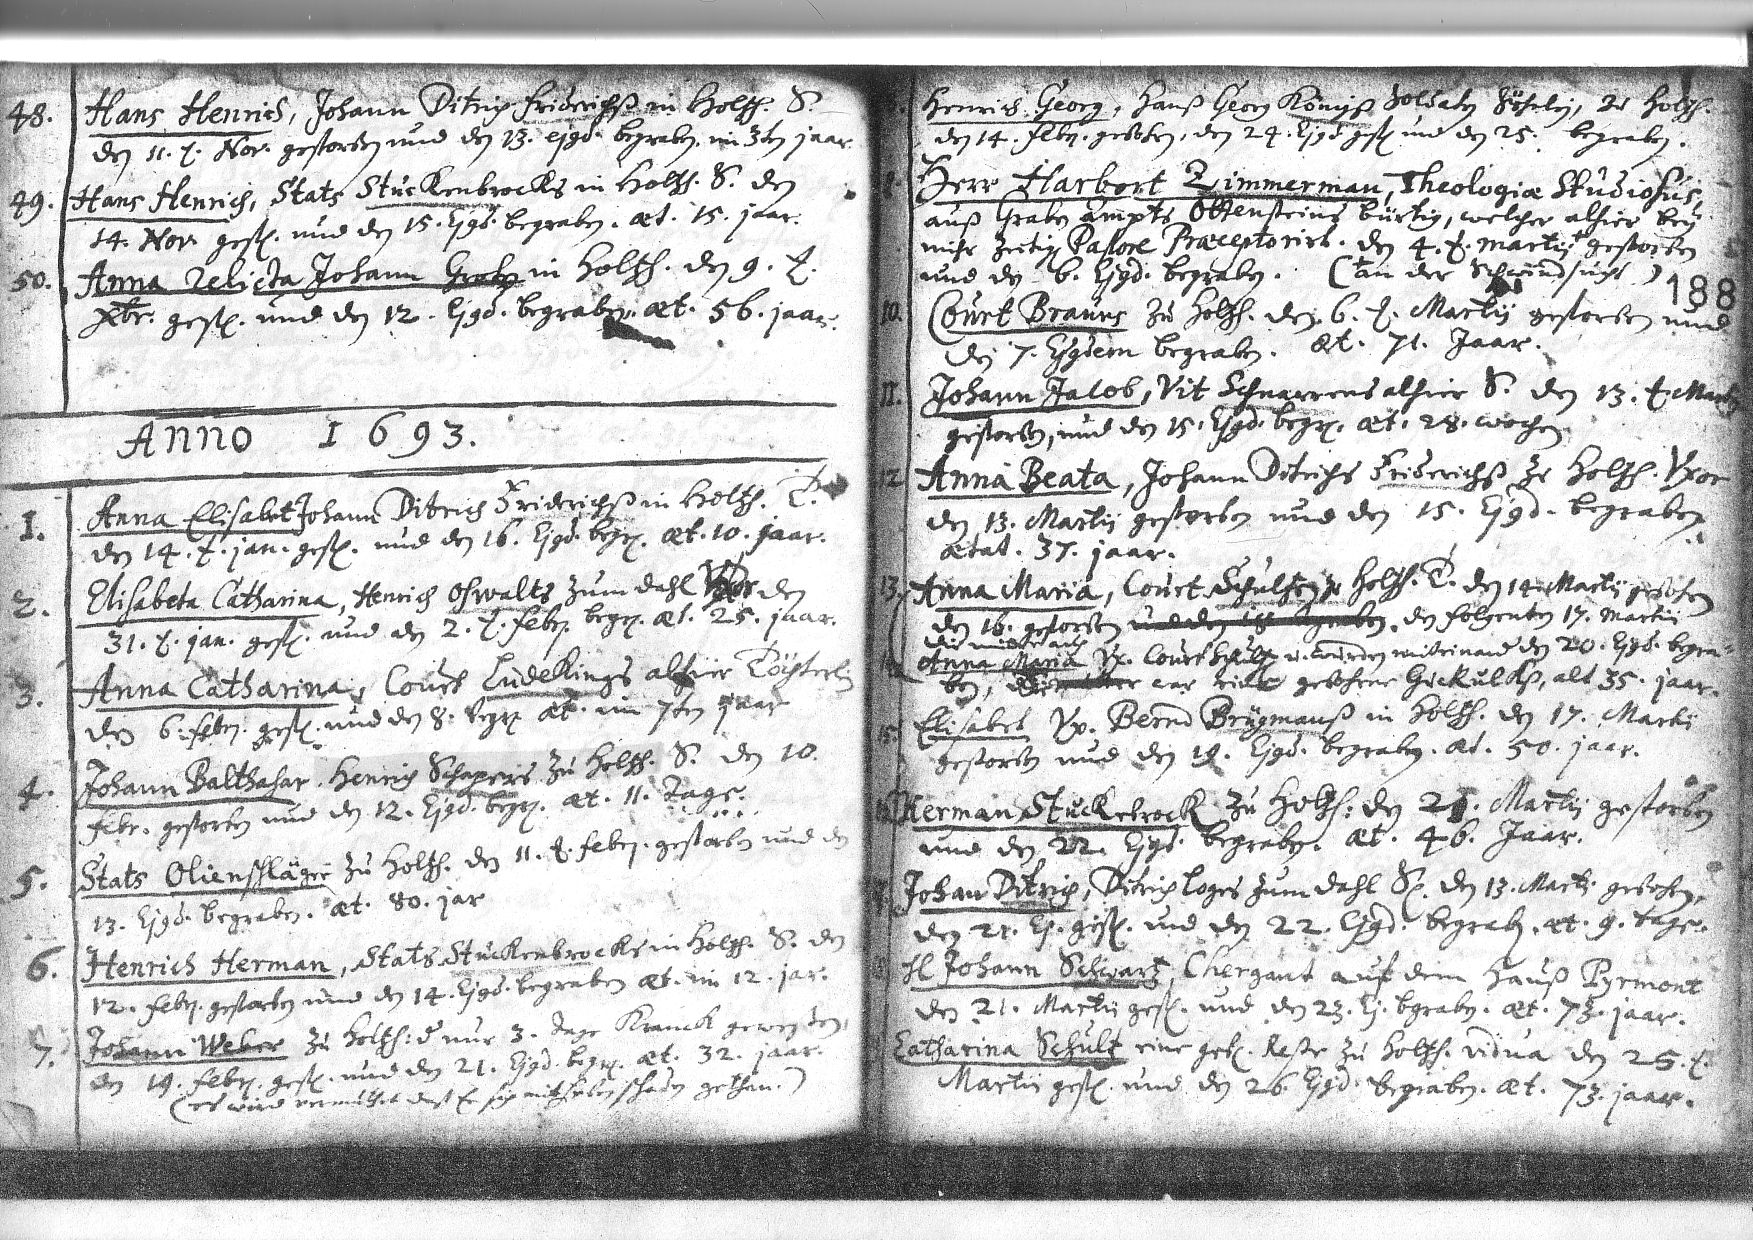 48. Hans Henrich, Johann Ditrich Friderichß in Holtzh. S.
den 11. t. Nov. gestorben und den 13. ejgd. begraben. im 3ten jaar.
49. Hans Henrich, Stats Stuckenbrocks in Holtzh. S. den
14. Nov. gest. und den 15. Ejgd. begraben. æt. 15. jaar.
50. Anna relicta Johann in Holtzh. den 9. t.
Xbr. gest. und den 12. Ejgd. begraben. æt. 56. jaar.
ANNO 1693.
1. Anna Elisabet Johann Ditrich Friderichß in Holtzh. T.
den 14. t. jan. gest. und den 16. Ejgd. begr. æt. 10. jaar.
2. Elisabeta Catharina, Henrich Oswalts zum dahl Uxor den
31. t. jan. gest. und den 2. t. febr. begr. æt. 25. jaar.
3. Anna Catharina, Court Ludekings alhier Töchterl.
den 6. febr. gest. und den 8. begr. æt. im 7ten jaar
4. Johann Balthasar, Henrich Schapers zu Holtzh. S. den 10.
febr. gestorben und den 12. Ejgd. begr. æt. 11. Tage.
5. Stats Olienschläger zu Holtzh. den 11. t. febr. gestorben und den
13. Ejgd. begraben. æt. 80. jar
6. Henrich Herman, Stats Stuckenbrocks in Holtzh. S. den
12. febr. gestorben und den 14. Ejgd. begraben æt. im 12. jar.
7. Johann Weber zu Holtzh: nur 3. tage Kranck gewesen,
den 19. febr. gest. und den 21. Ejgd. begr. æt. 32. jaar.
(es wird vermuthet daß Er sich mit schaden gethan.)
Henrich Georg, Hanß Georg Königs Soldaten Söhnlein, zu Holtzh.
den 14. febr. gebohren, den 24. Ejgd. gest. und den 25. begraben.
Herr Harbort Zimmerman, Theologiæ Studiosus,
auß Grabe ampts Ottensteins bürtig, welcher alhier bey
mihr zeitig Pastore Præceptorirt. den 4. t. Martij gestorben
und den 6. Ejgd. begraben. (an der Schwindsucht)
188
10. Court Brauns zu Holtzh. den 6. t. Martij gestorben und
den 7. Ejusdem begraben. æt. 71. Jaar.
11. Johann Jacob, Vit Schnarrens alhier S. den 13. t. Martij
gestorben, und den 15. Ejgd. begr. æt. 28. wochen
12. Anna Beata, Johann Ditrichs Friderichß zu Holtzh. Uxor
den 13. Martij gestorben und den 15. Ejgd. begraben
ætat. 37. jaar.
13. Anna Maria, Court Schulten zu Holtzh. T. den 14. Martij gebohren
den 16. gestorben und den 18 begraben. den folgenten 17. Martij
die mutter auch
Anna Maria Ux. Court Schult u. wurden miteinand den 20. Ejgd. begra-
ben, war eine gebohrne, alt 35. jaar.
15. Elisabet Ux. Bernd Brügmanß in Holtzh. den 17. Martij
gestorben und den 19. Ejgd. begraben. æt. 50. jaar.
Herman Stuckebrock zu Holtzh: den 21. Martij gestorben
und den 22. Ejgd. begraben. æt. 46. Jaar.
Johan Ditrich, Ditrich Loges zum dahl S. den 13. Marti gebohren,
den 21. Ej. gest. und den 22. Ejgd. begrab. æt. 9. tage.
H Johann Schwartz, Chergant auf dem Hauß Pyrmont
den 21. Martij gest. und den 23. Ej. begraben. æt. 73. jaar.
Catharina Schult eine geb. zu Holtzh. vidua den 25. t.
Martij gest. und den 26 Ejgd. begraben. æt. 73. jaar.